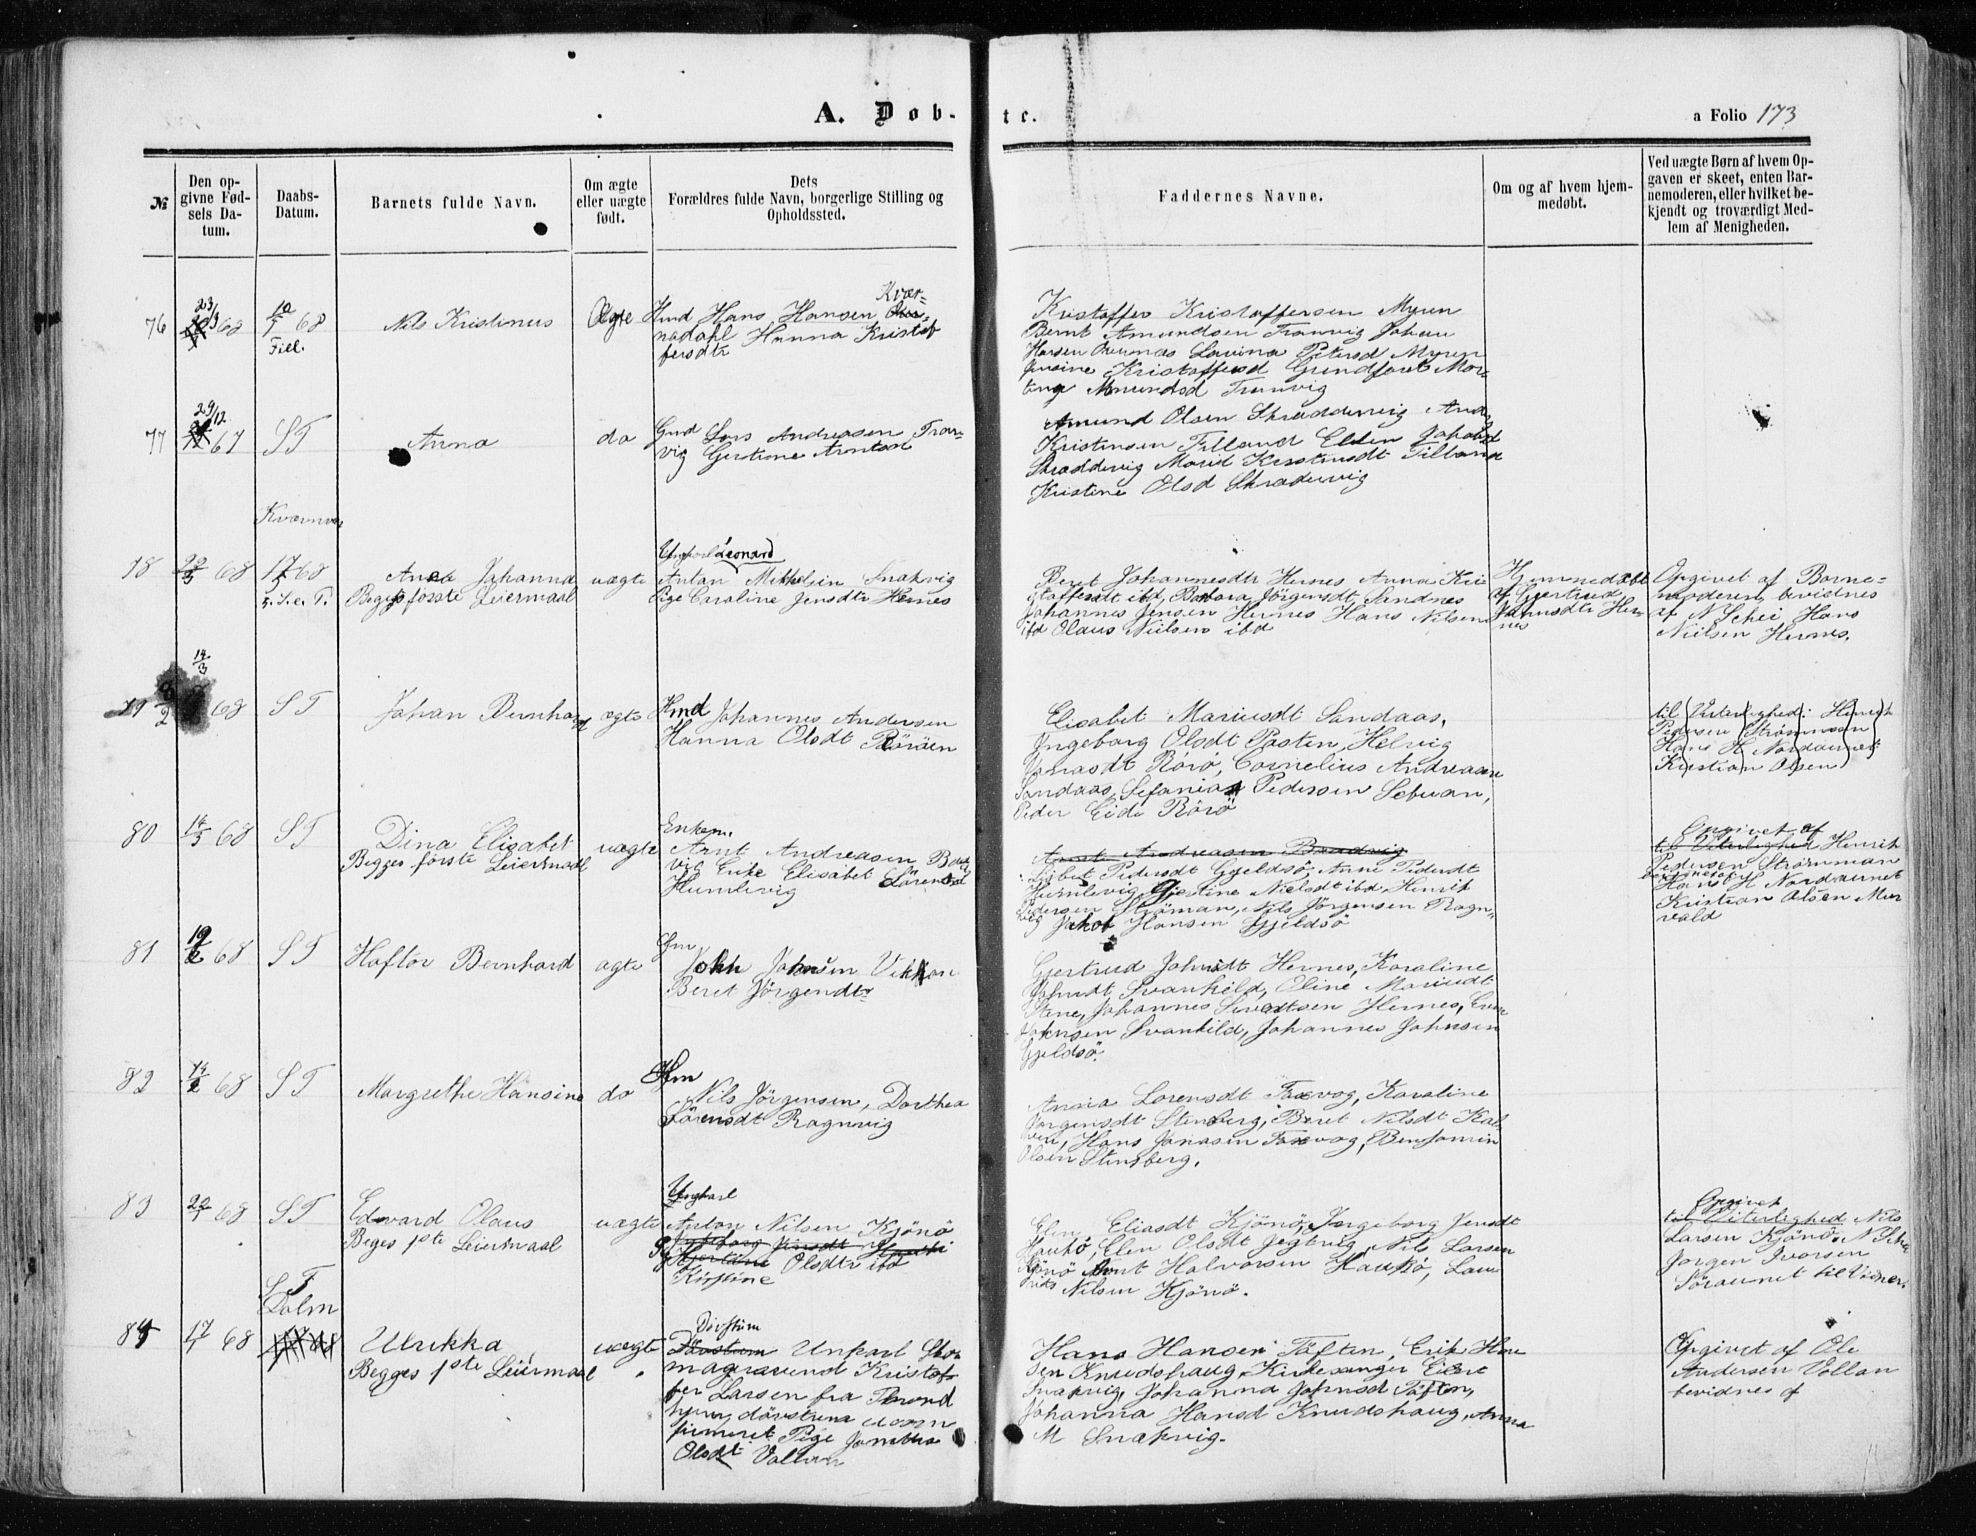 A. Døb-
te.
a Folio 173
№
Den op-
givne Fød-
sels Da-
tum.
Daabs-
Datum.
Barnets fulde Navn.
Om ægte
eller uægte
født.
Dets
Forældres fulde Navn, borgerlige Stilling og
Opholdssted.
Faddernes Navne.
Om og af hvem hjem-
medøbt.
Ved uægte Børn af hvem Op-
gaven er skeet, enten Bar-
nemoderen, eller hvilket be-
kjendt og troværdigt Med-
lem af Menigheden.
76
23/3 68
10/7 68
Fill.
Nils Kristinus
Ægte
Hmd Hans Hansen Kvær-
nadahl Hanna Kristof
fersdtr
Kristoffer Kristoffersen Myren
Bernt Amundsen Tranvig Johan
Hansen Lavina Petersd Myren
Kristoffersd Grindforet Mor-
tine Amundsd Tranvig
77
29/12 67
ST
Anna
do
Gmd Lars Andreasen Tran-
vig Gertine Arntsd
Amund Olsen Skraddervig
Kristensen Tilland Ellen Jakobsd
Skraddervig Marit Kristensdt Tilland
Kristine Olsd Skradervig
Kværnvær
78
22/3 68
17/5 68
Anna Johanna
Begges første Leiermaal
uægte
Ungkarl Leonard
Anton Mikkelsen Snakvig
Pige Caroline Jensdtr Hernes
Beret Johannesdtr Hernes Anna Kri
stoffersdt ibd, Barbara Jörgensdt Sandnes
Johannes Jensen Hernes Hans Nilsen
ibd Olaus Nielsen ibd
Hjemmedøbt
af Gjertrud
Johnsdtr Her-
nes
Opgivet af Barne-
moderen, bevidnes
af N Schei Hans
Nielsen Hernes.
79
14/3
68
ST
Johan Bernhard
ægte
Hmd Johannes Andersen
Hanna Olsdt Röröen
Elisabet Mariusdt Sandaas,
Ingeborg Olsdt Pasten, Helvig
Jonasdt Rörö, Cornelius Andreasen
Sandaas, Sefanias Pedersen Setvan,
Peder Eide Rörö
til Viterlighed: Henrik
Pedersen Strömman
Hans H Nordaunet
Kristian Olsen
80
14/3 68
ST
Dina Elisabet
Begges første Leiermaal
uægte
Enkem.
Arnt Andreasen
vig Enke Elisabet Sörensd
Humlevig
Arnt Andreasen
Lisbet Pedersdt Gjeldsö, Anne Pedersdt
Humlevig, Gjertine Nielsdt ibd, Henrik
Pedersen Ströman, Nils Jörgensen Ragn-
vig Jakob Hansen Gjeldsö
Opgivet af
til Viterlighed Henrik
Pedersen Strömman
Hans H Nordaunet
Kristian Olsen Mur
vald
81
19/2 68
ST
Haftor Bernhard
ægte
Gm
John Johnsen Vikan
Beret Jörgendtr
Gjertrud Johnsdt Hernes, Karaline
Johnsdt Svankild, Oline Mariusdt
Stene, Johannes Sivertsen Hernes,
Johnsen Svankild, Johannes Johnsen
Gjeldsö.
82
14/2 68
ST
Margrethe Hansine
do
Hm
Nils Jörgensen, Dorthea
Sörensdt Ragnvig
Anna Lorensdt Faxvog, Karaline
Jörgensdt Stensberg, Beret Nilsdt Kal
ven, Hans Jonasen Faxvog, Benjamin
Olsen Stensberg.
83
22/1 68
ST
Edvard Olaus
Beges 1ste Leiermaal
uægte
Ungkarl
Anton Nilsen Kjönö
Ingeborg Jensdt
Pg Gjertine Olsdtr ibd
Kirstine
Elen Eliasdt Kjönö, Ingeborg Jensdt
Haukö, Elen Olsdt Jegtvig, Nils Larsen
Kjönö Arnt Halvorsen Hauksö, Lau
rits Nilsen Kjönö.
Opgivet
til Viterlighed Nils
Larsen Kjönö, N
Jörgen Ivarsen
Söraunet til Vidner
84
17/1 68
ST
Dolm
Ulrikka
Begges 1ste Leiermaal
uægte
Dövstum
Dövstum Unkarl Sko
magersvend Kristof
fer Larsen fra Trond
hjem, dövstum ucon
firmeret Pige
Olsdt Vollan
Hans Hansen Töften, Erik Han
sen Knudshaug, Kirkesanger Eilert
Snakvig, Johanna Johnsd Töften,
Johanna Hansd Knudshaug, Anna
M Snakvig.
Opgivet af Ole
Andersen Vollan
bevidnes af